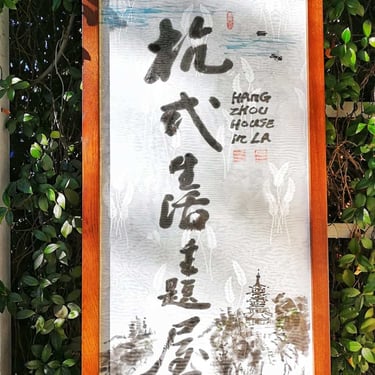 杭式生活主题屋
HANG
ZHOU
HOUSE
in LA